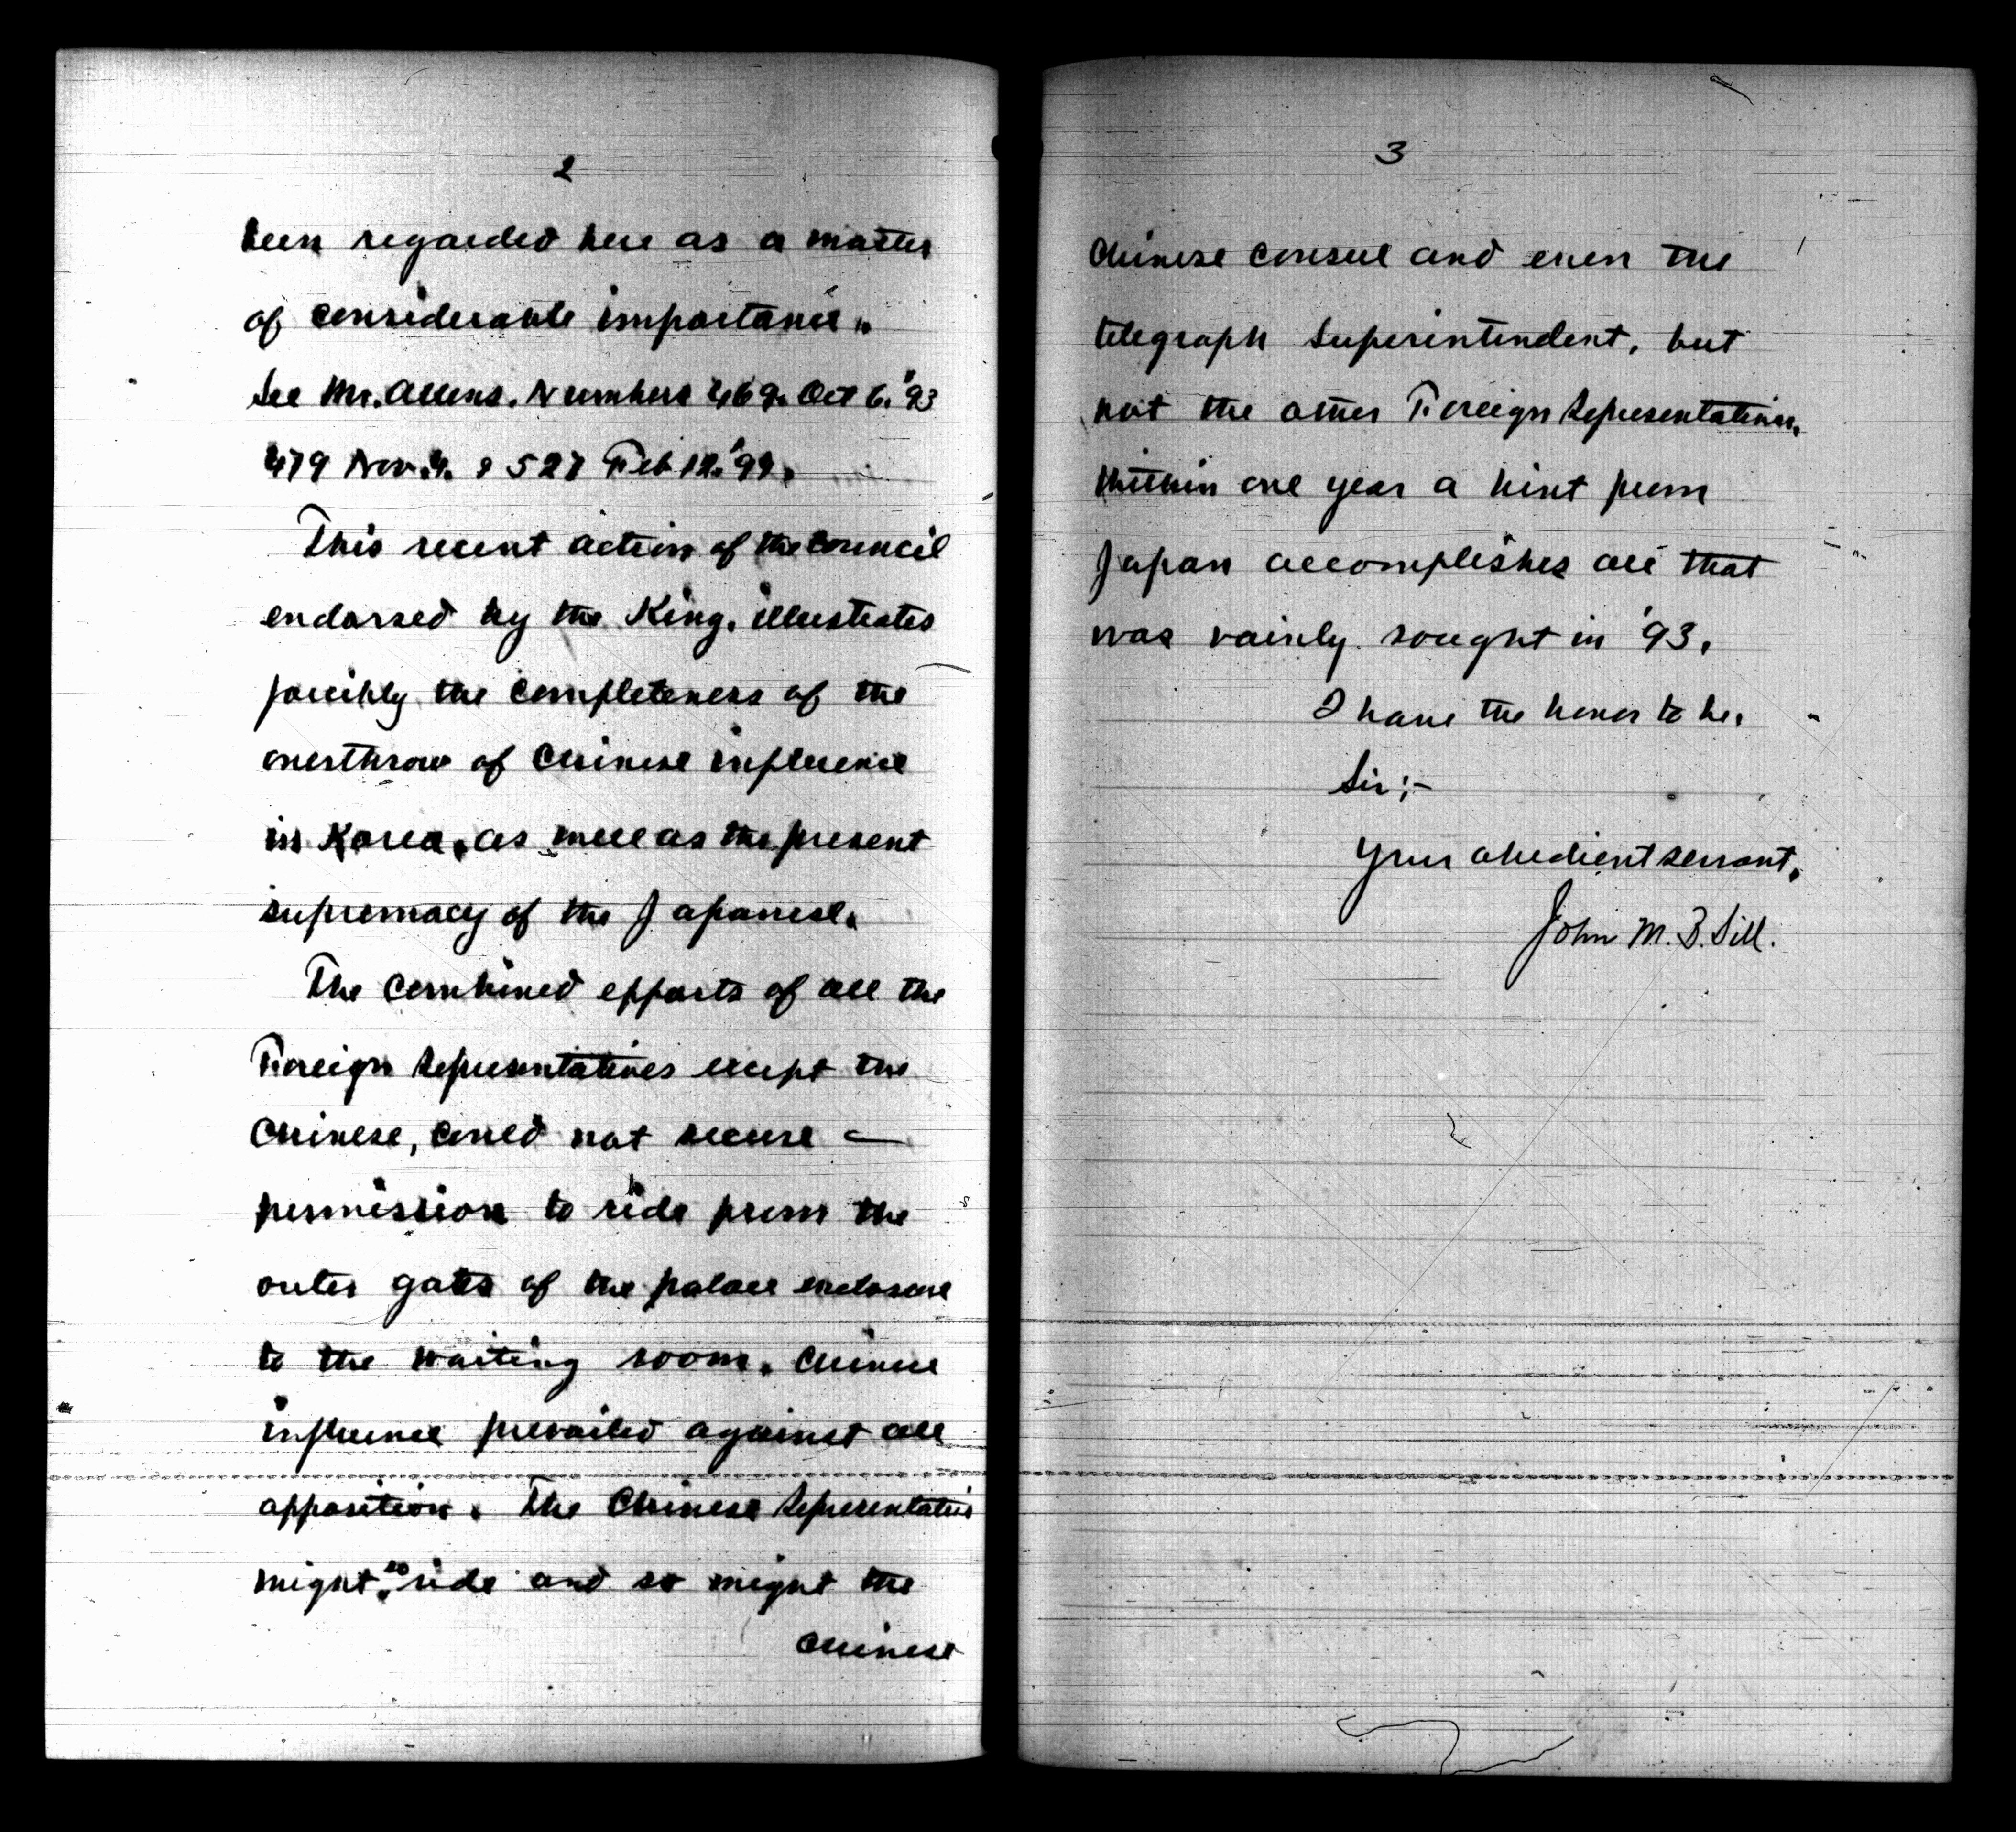 2
been regarded here as a matter
of considerable importance.
See Mr. Allens. Numbers 469. Oct 6. '93
479 Nov. 4. & 527 Feb 12. '94.
This recent action of the Council
endorsed by the King, illustrates
forcibly the completeness of the
overthrow of Chinese influence
in Korea, as well as the present
supremacy of the Japanese.
The combined efforts of all the
Foreign Representatives except the
Chinese, could not secure —
permission to ride from the
outer gate of the palace enclosure
to the waiting room. Chinese
influence prevailed against all
opposition. The Chinese Representative
might so ride and so might the
Chinese
3
Chinese Consul and even the
telegraph Superintendent, but
not the other Foreign Representatives.
Within one year a hint from
Japan accomplishes all that
was vainly sought in '93.
I have the honor to be,
Sir:-
Your obedient servant,
John M. B. Sill.